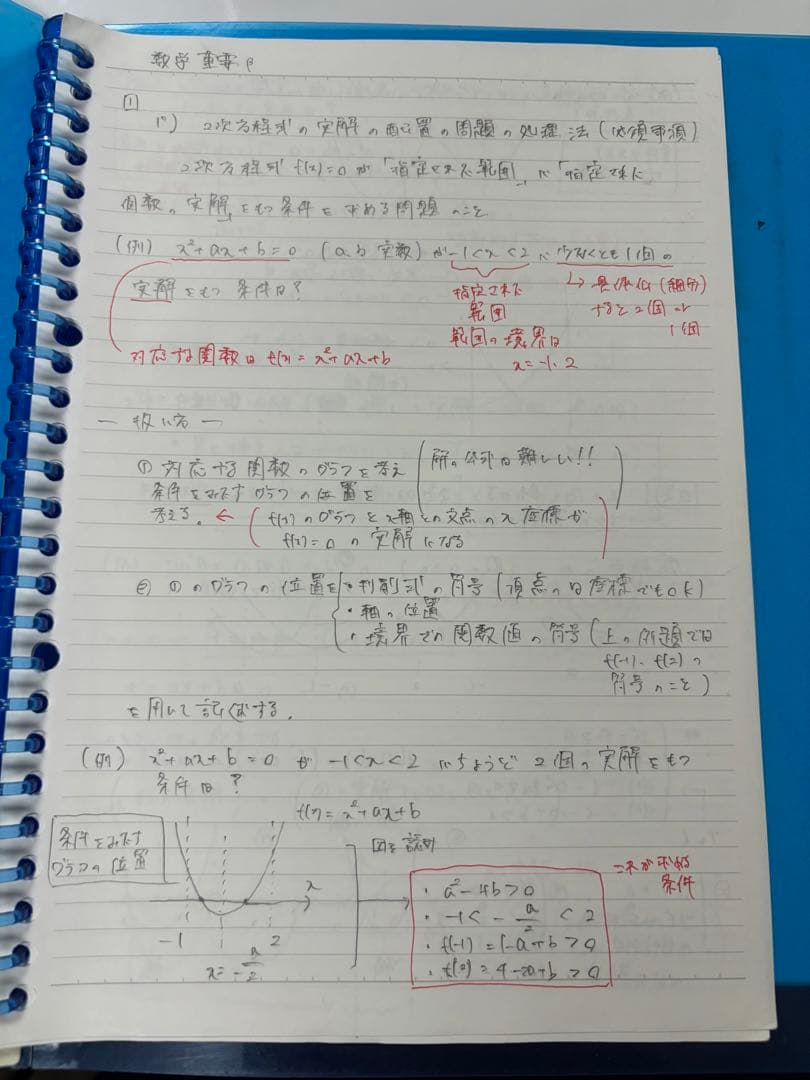 数学 重要β
1
P) 2次方程式の実解の配置の問題の処理法(必須事項)
2次方程式 f(x)=0 が「指定された範囲」に「指定された
個数の実解」をもつ条件を求める問題のこと
(例) x²+ax+b=0 (a,b 実数) が -1<x<2 に少なくとも1個の
実解をもつ条件は?
指定された
範囲
範囲の境界は
x=-1, 2
↳ 具体化(細分)
すると2個or
1個
対応する関数は f(x)=x²+ax+b
― 扱い方 ―
① 対応する関数のグラフを考え
条件をみたすグラフの位置を
考える。
(解の公式は難しい!!)
← (f(x)のグラフとx軸との交点のx座標が
f(x)=0 の実解になる)
② ①のグラフの位置を
・判別式の符号(頂点のy座標でもok)
・軸の位置
・境界での関数値の符号(上の例題では
f(-1), f(2)の
符号のこと)
を用いて記述する。
(例) x²+ax+b=0 が -1<x<2 にちょうど2個の実解をもつ
条件は?
f(x)=x²+ax+b
条件をみたす
グラフの位置
x
-1
2
x=-a/2
図を説明
これが求める
条件
・a²-4b>0
・-1<-a/2<2
・f(-1)=1-a+b>0
・f(2)=4-2a+b>0